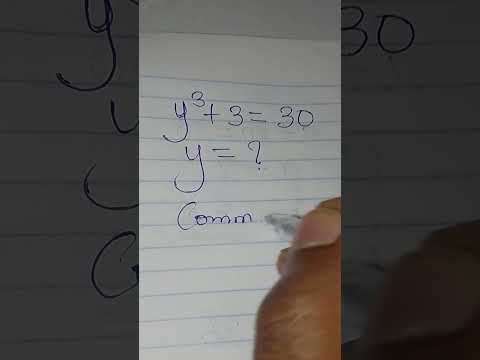 y³ + 3 = 30
y = ?
Comm